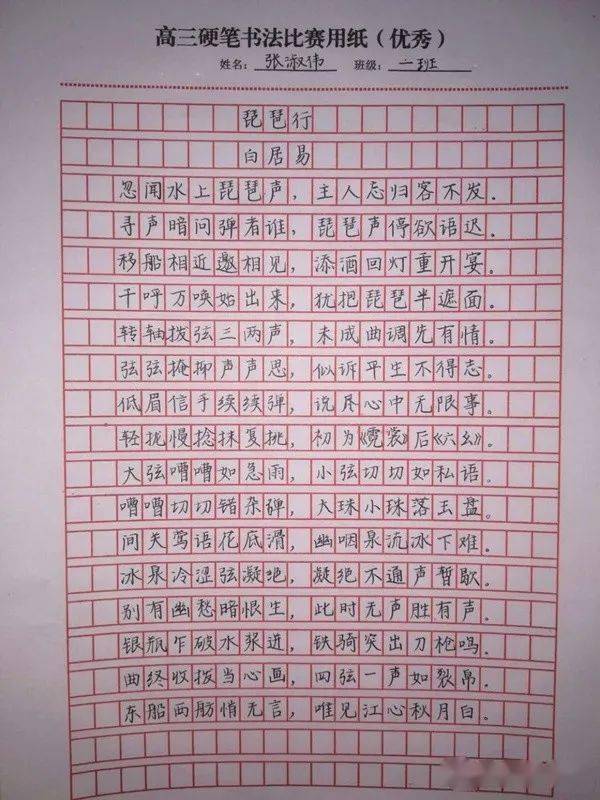 高三硬笔书法比赛用纸（优秀）
姓名：张淑伟 班级：二班
琵琶行
白居易
忽闻水上琵琶声，主人忘归客不发。
寻声暗问弹者谁，琵琶声停欲语迟。
移船相近邀相见，添酒回灯重开宴。
千呼万唤始出来，犹把琵琶半遮面。
转轴拨弦三两声，未成曲调先有情。
弦弦掩抑声声思，似诉平生不得志。
低眉信手续续弹，说尽心中无限事。
轻拢慢捻抹复挑，初为《霓裳》后《六幺》。
大弦嘈嘈如急雨，小弦切切如私语。
嘈嘈切切错杂弹，大珠小珠落玉盘。
间关莺语花底滑，幽咽泉流冰下难。
冰泉冷涩弦凝绝，凝绝不通声暂歇。
别有幽愁暗恨生，此时无声胜有声。
银瓶乍破水浆迸，铁骑突出刀枪鸣。
曲终收拨当心画，四弦一声如裂帛。
东船西舫悄无言，唯见江心秋月白。